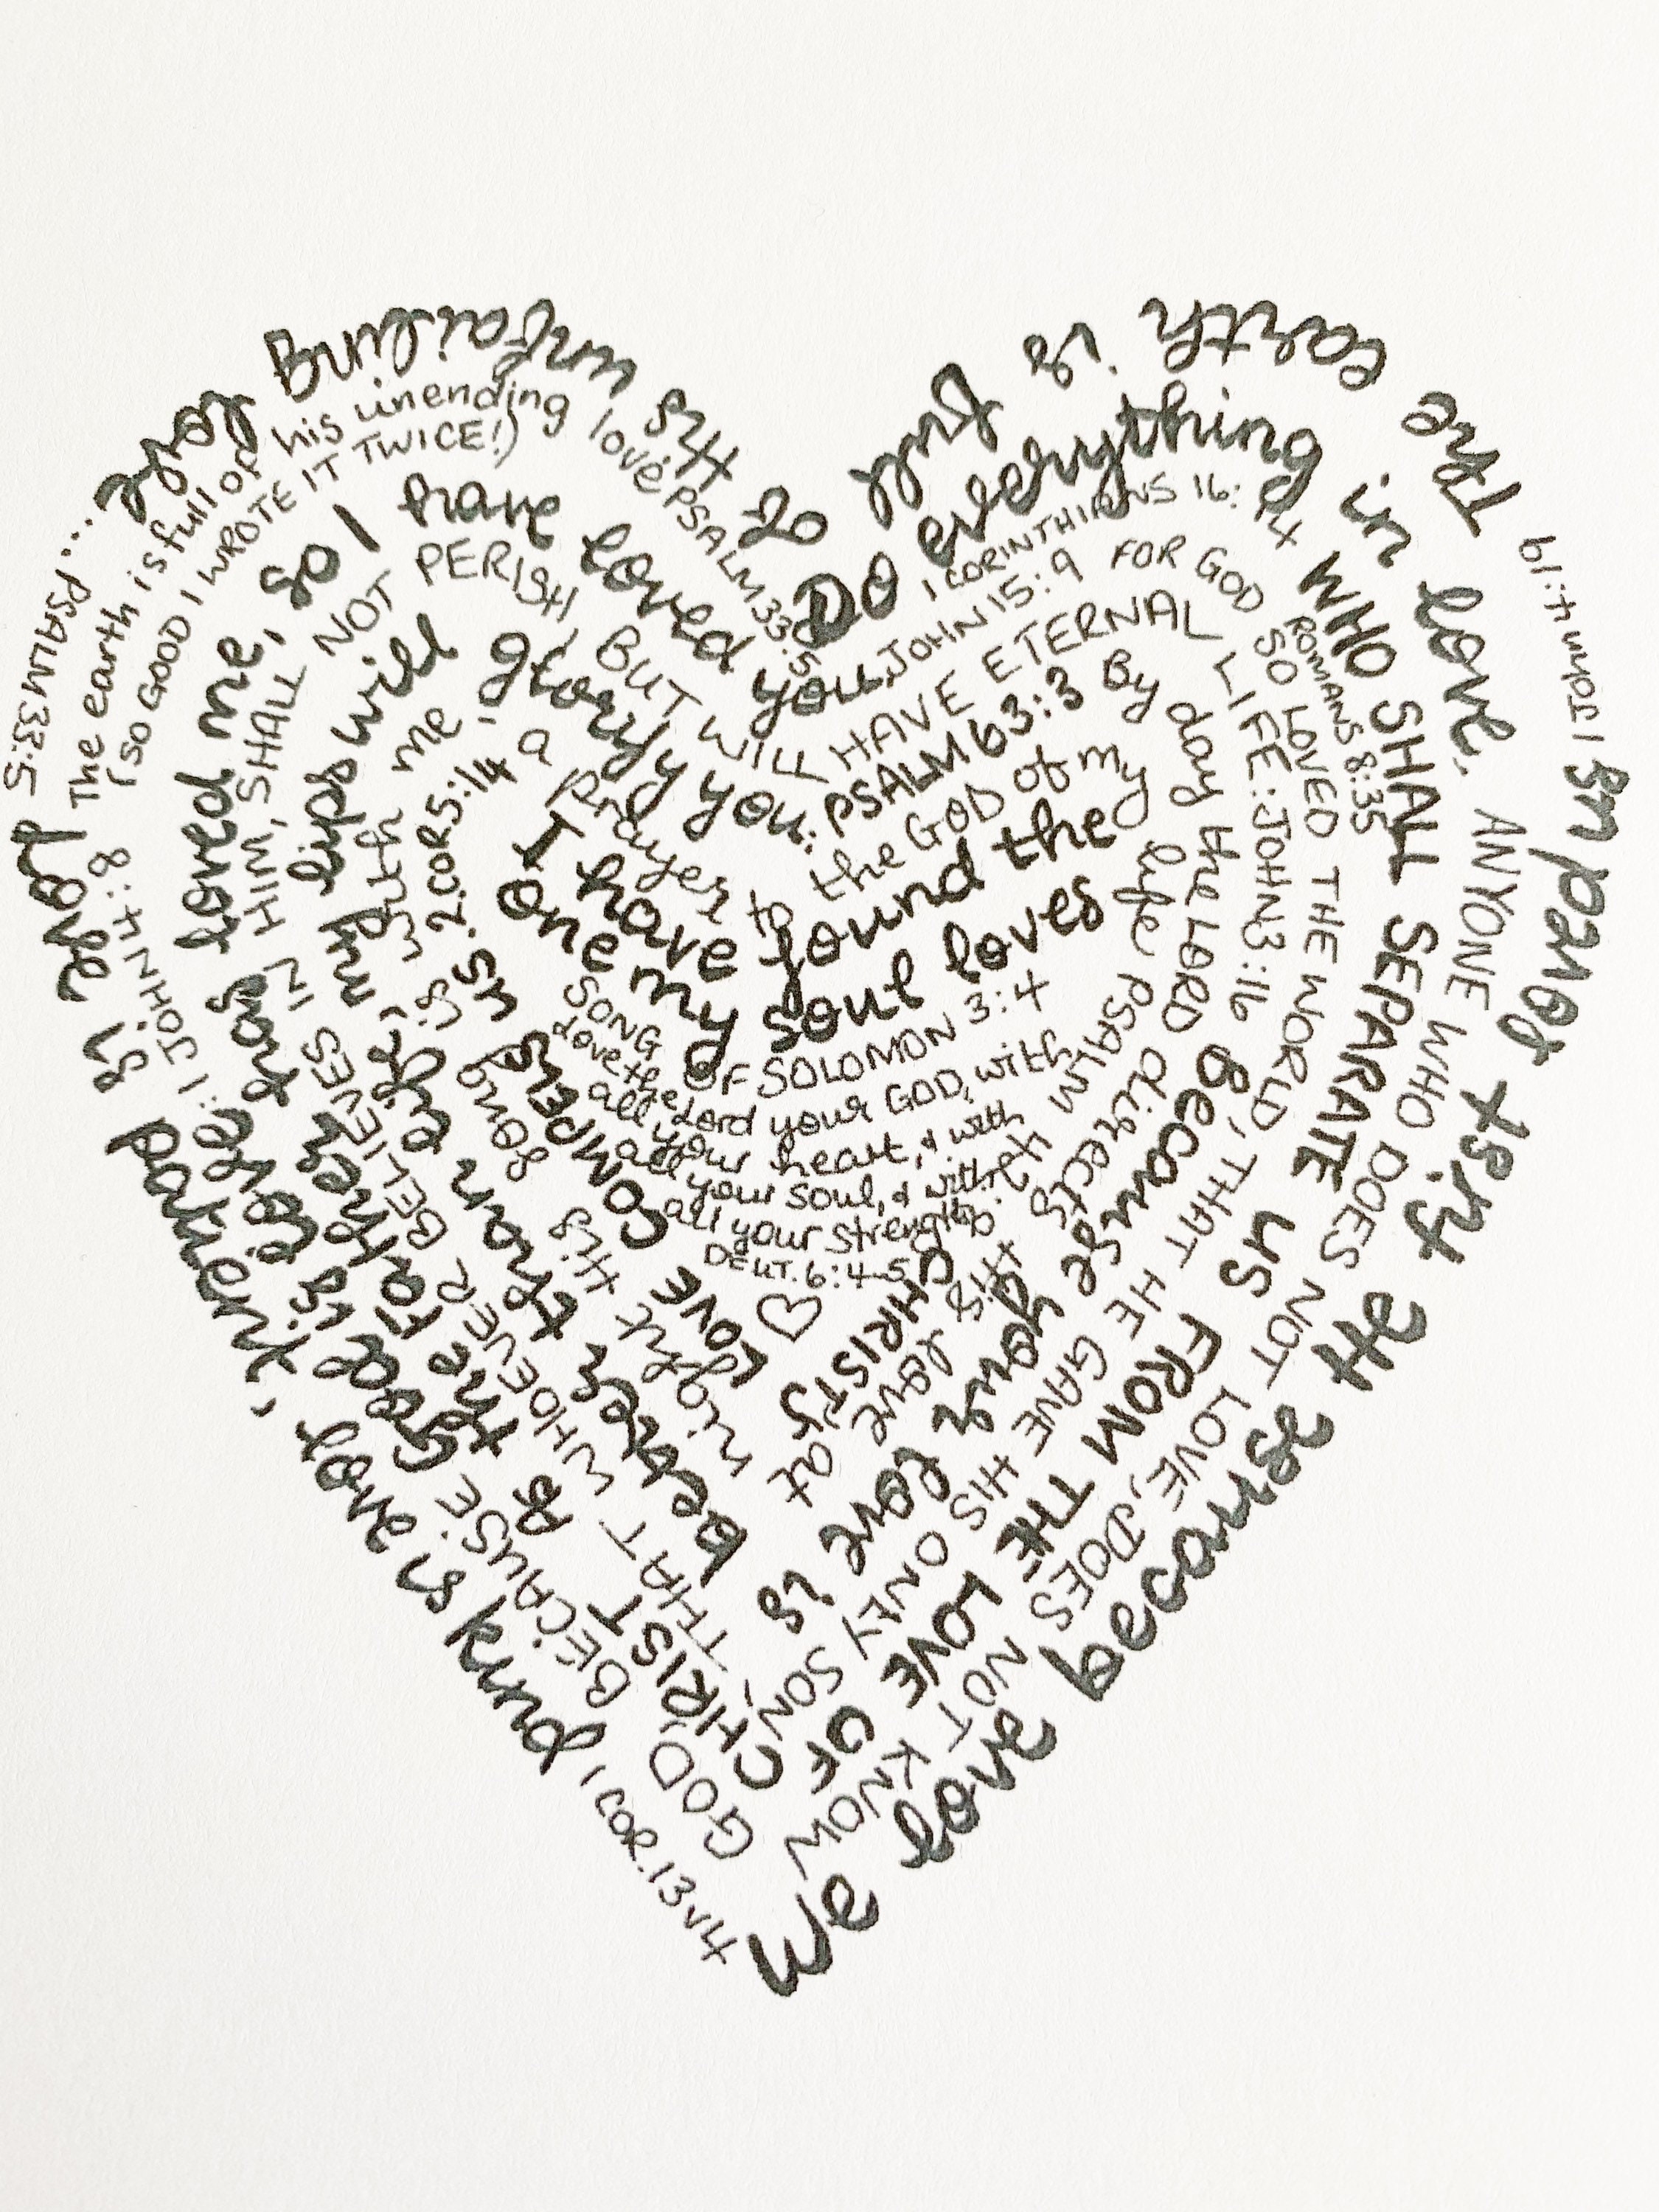 We love because He first loved us 1 John 4:19
The earth is full of His unfailing love... PSALM 33:5
love is patient, love is kind 1 COR. 13 v4
Do everything in love.
1 CORINTHIANS 16:14
The earth is full of his unending love PSALM 33:5
(SO GOOD I WROTE IT TWICE!)
ANYONE WHO DOES NOT LOVE, DOES NOT KNOW GOD, BECAUSE God is Love: 1 JOHN 4:8
WHO SHALL SEPARATE US FROM THE LOVE OF CHRIST
ROMANS 8:35
As the Father has loved me, so I have loved you. JOHN 15:9
FOR GOD SO LOVED THE WORLD, THAT HE GAVE HIS ONLY SON, THAT WHOEVER BELIEVES IN HIM, SHALL NOT PERISH, BUT WILL HAVE ETERNAL LIFE: JOHN 3:16
Because your love is better than life, my lips will glorify you: PSALM 63:3
By day the LORD directs His love at night His song is with me, a prayer to the GOD of my life PSALM 42:
CHRIST'S LOVE COMPELS US. 2.COR 5:14
I have found the
one my soul loves
SONG OF SOLOMON 3:4
Love the Lord your GOD, with
all your heart, & with
all your soul, & with
all your strength
DEUT. 6:4-5